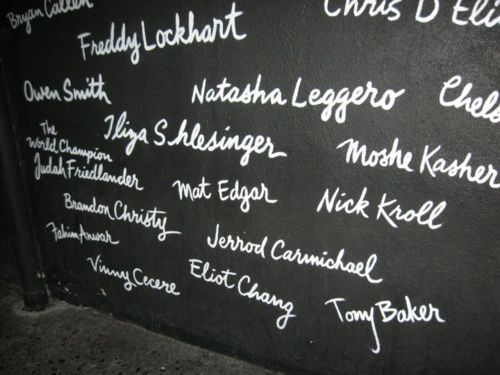 Bryan Callen
Chris D'Eli
Freddy Lockhart
Owen Smith
Natasha Leggero
Chels
Iliza Shlesinger
The
World Champion
Judah Friedlander
Moshe Kasher
Mat Edgar
Nick Kroll
Brandon Christy
Fahim Anwar
Jerrod Carmichael
Vinny Cecere
Eliot Chang
Tony Baker